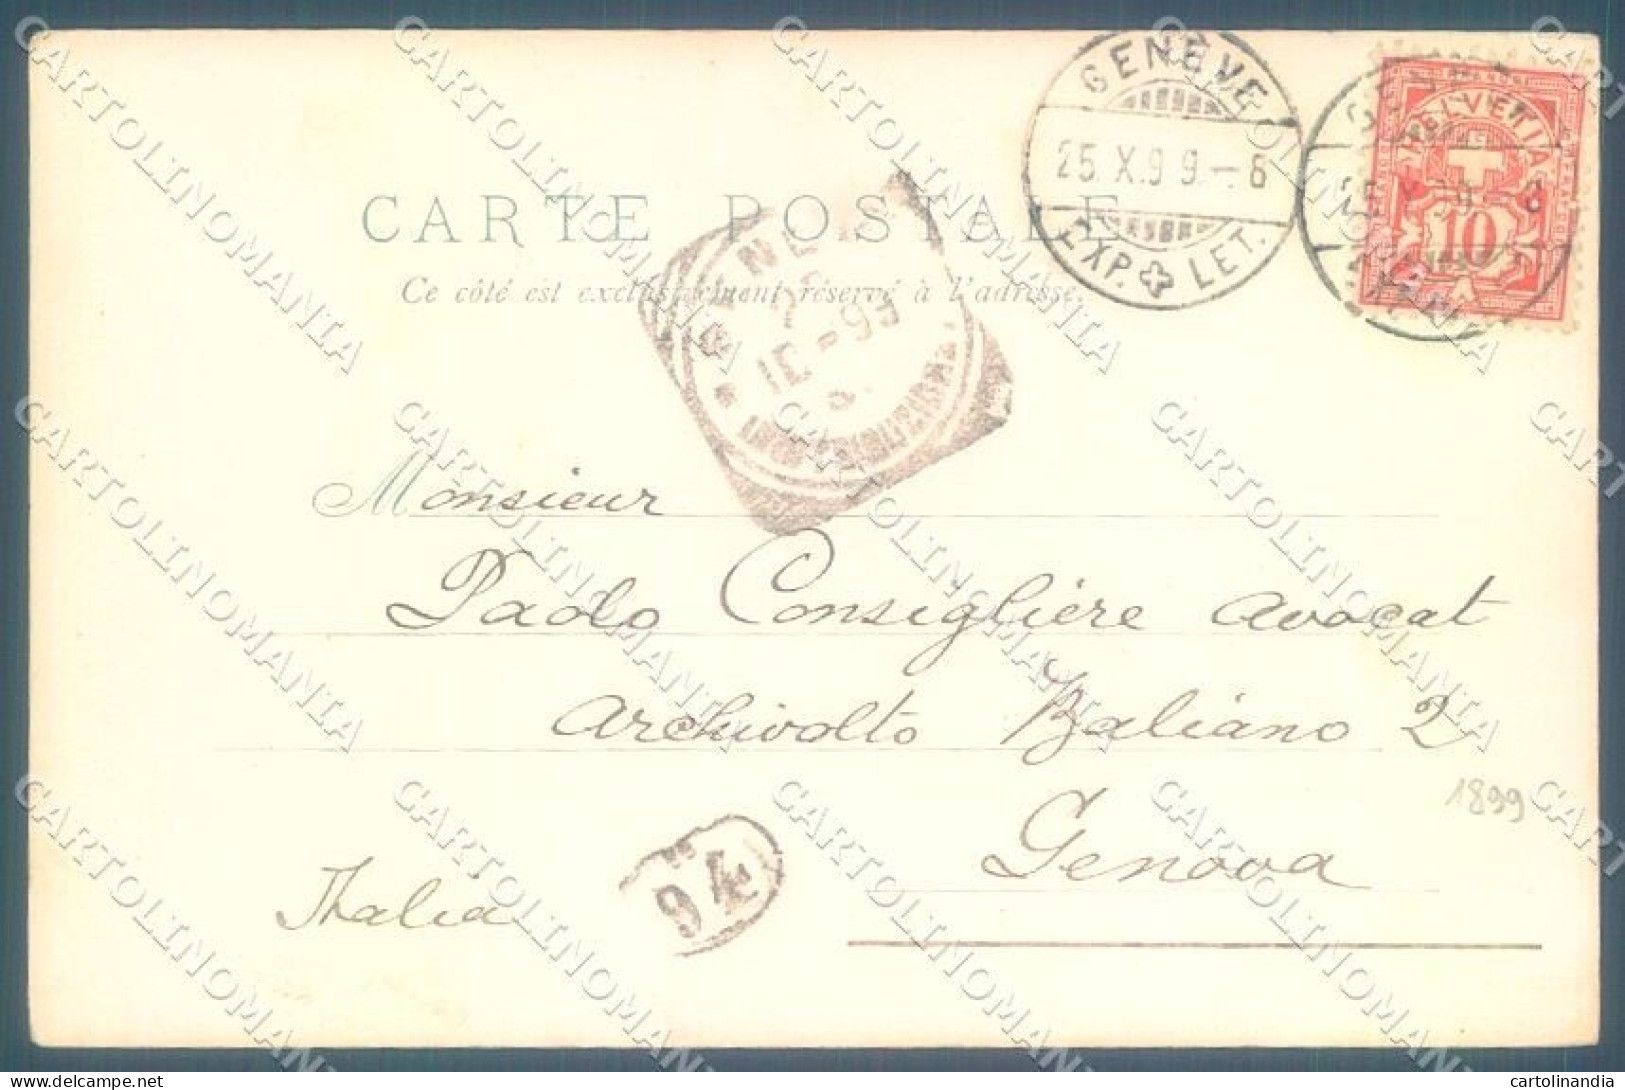 GENÈVE
25.X.99.-6
EXP. LET.
HELVETIA
10
CARTE POSTALE
Ce côté est exclusivement réservé à l'adresse.
10-99
Monsieur
Paolo Consiglière avocat
Archivolto Baliano 2
Genova
1899
Italia
94
CARTOLINOMANIA
delcampe.net
cartolinandia